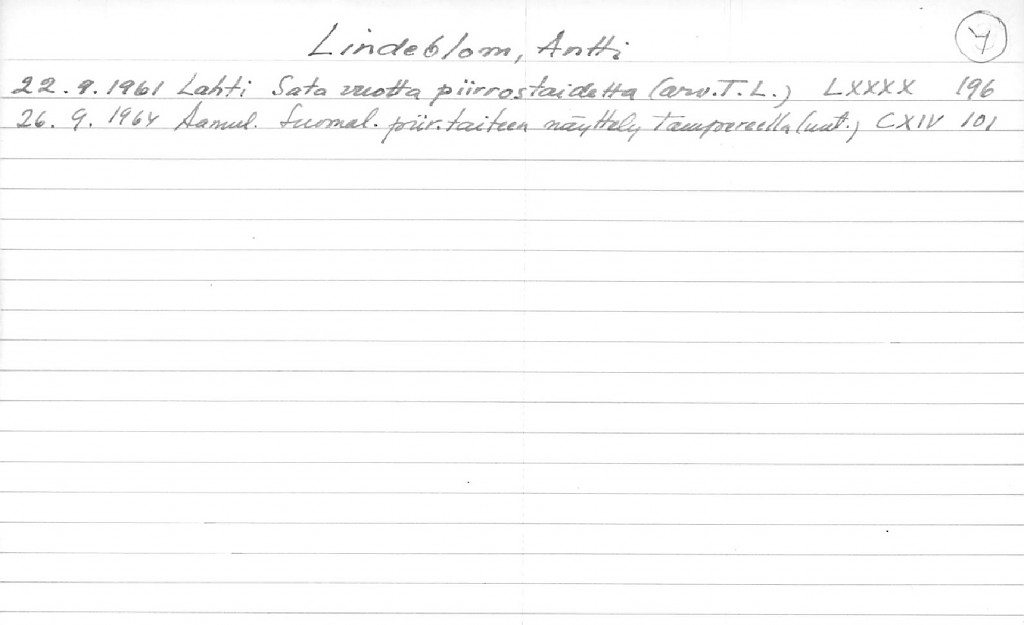 Lindeblom, Antti
22.9.1961 Lahti Sata vuotta piirrostaidetta (arv. T.L.) LXXXX 196
26.9.1964 Aamul. Suomal. piir.taiteen näyttely Tampereella (uut.) CXIV 101